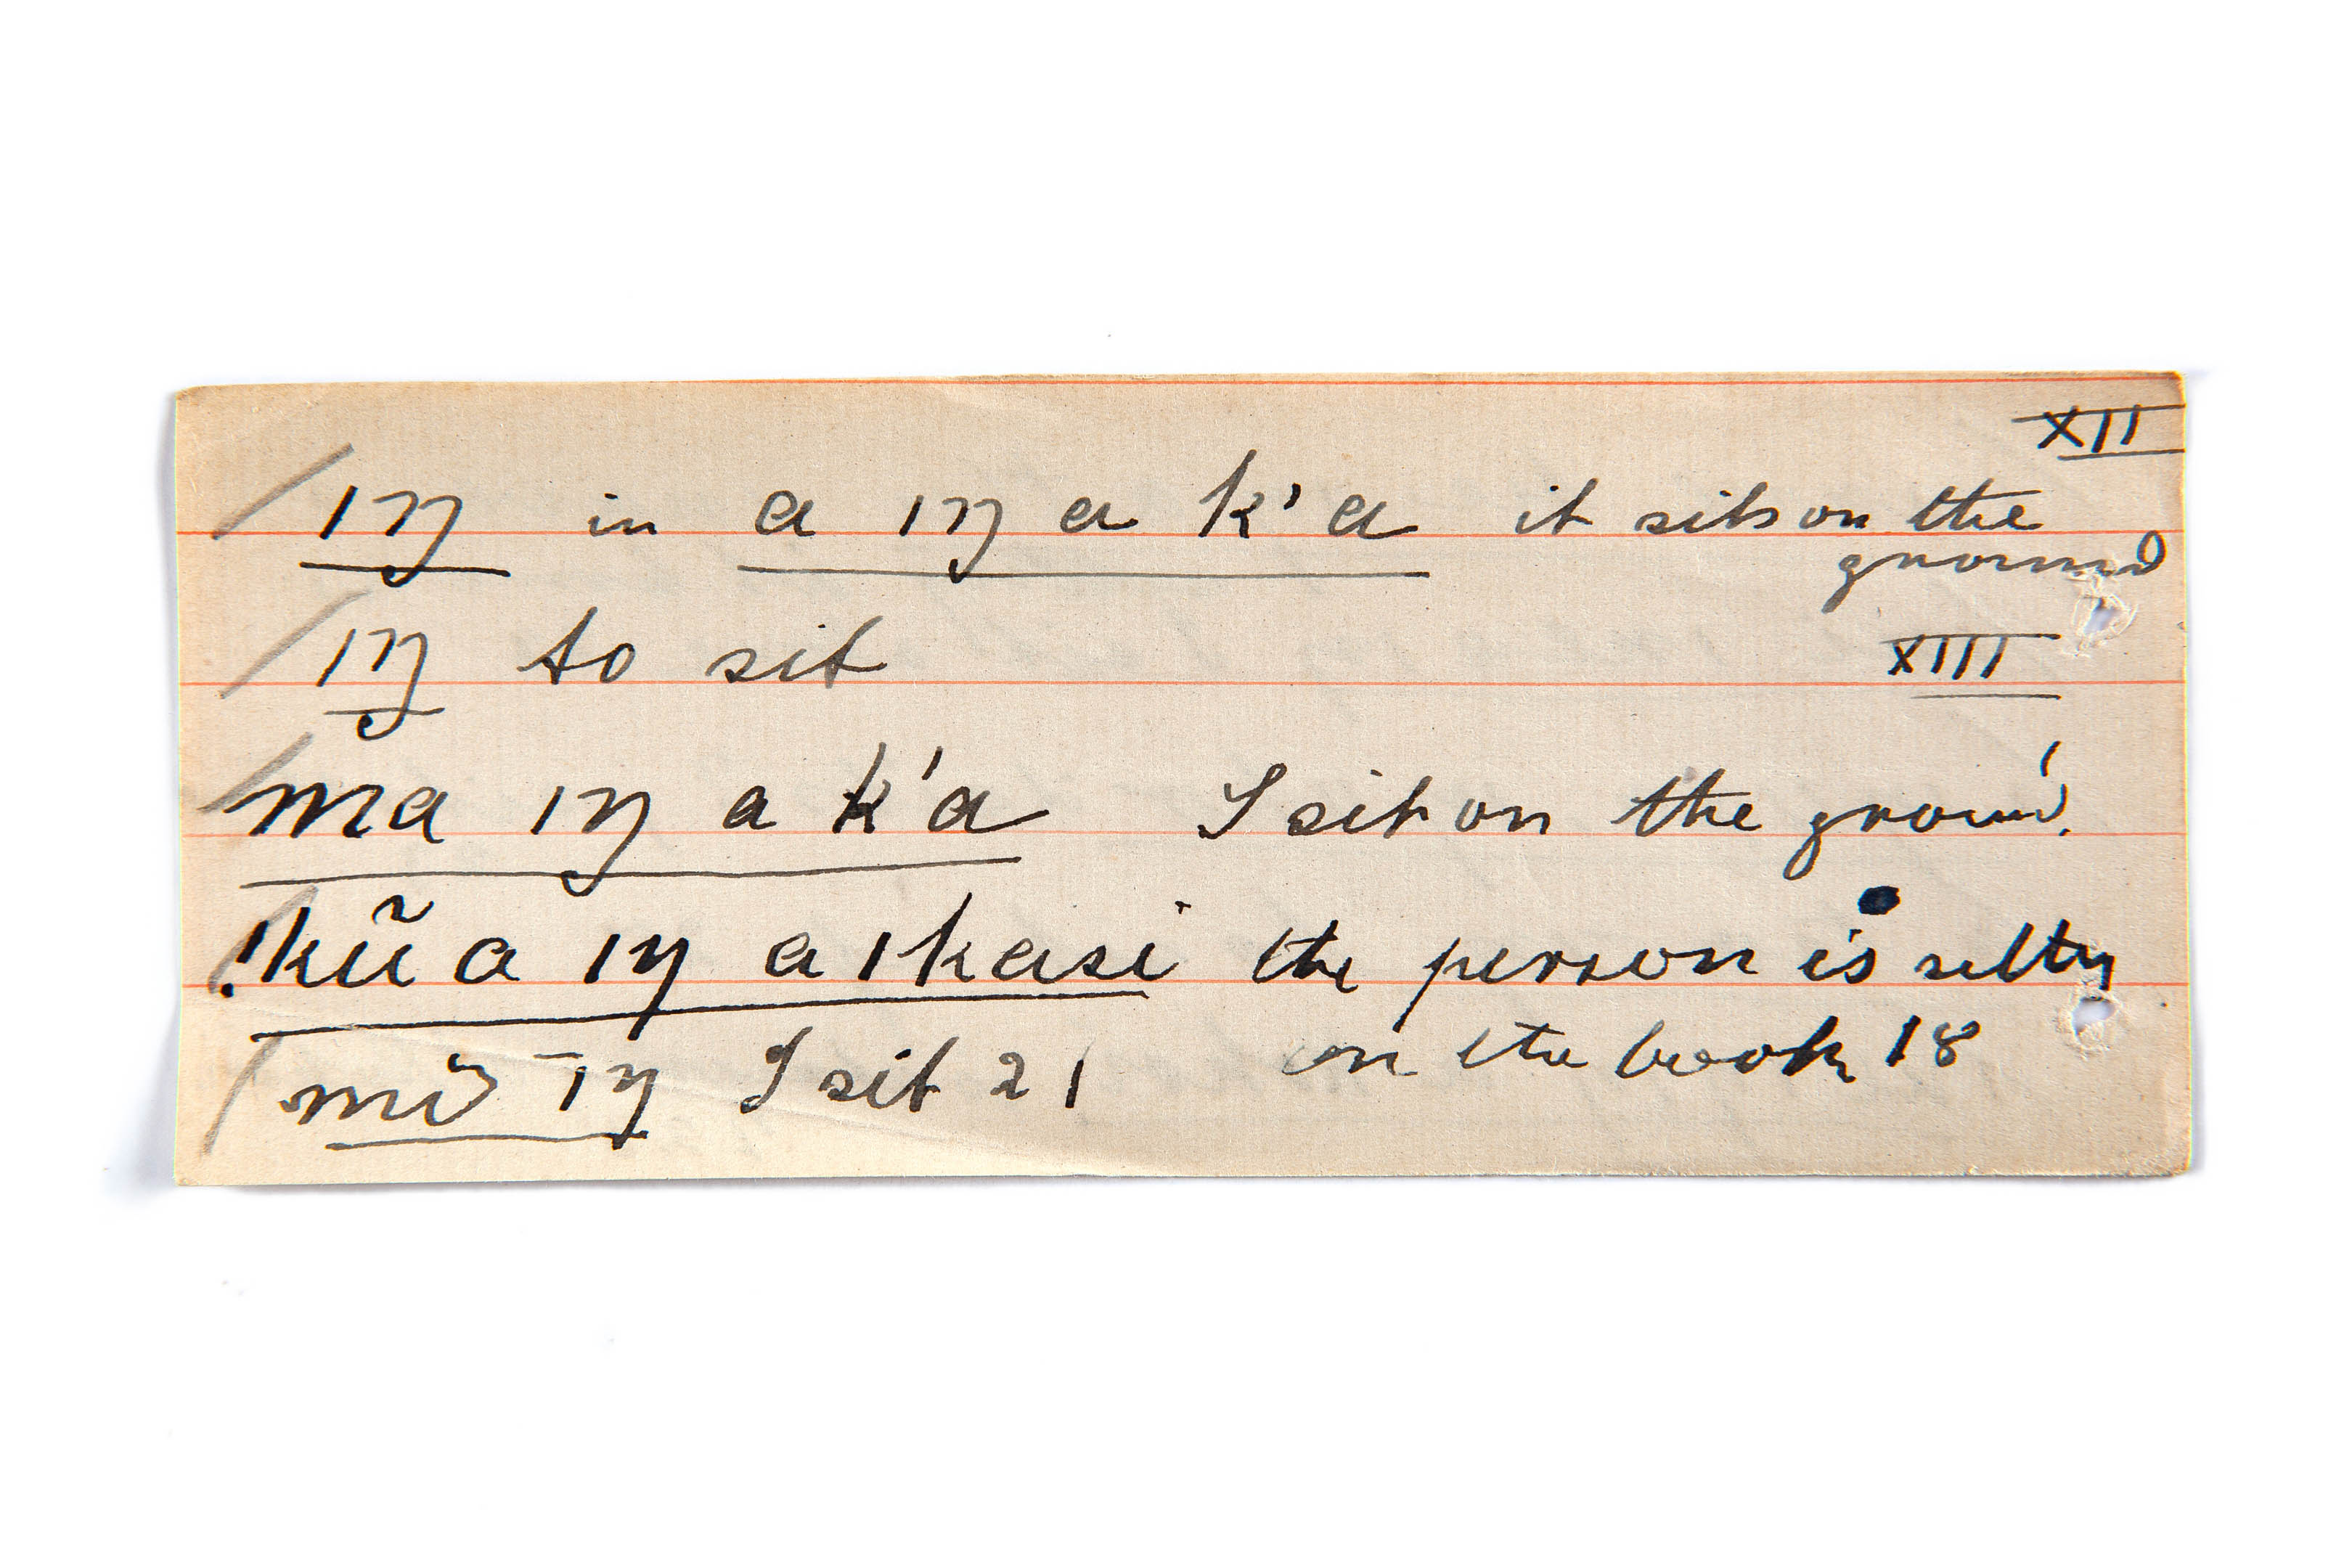 XII
/ıŋ in a ıŋ a k'a it sits on the
ground
/ıŋ to sit XIII
/ma ıŋ a k'a I sit on the ground
!kũa ıŋ a ıkasi the person is sitting
on the book 18
/mĭ ıŋ I sit 21